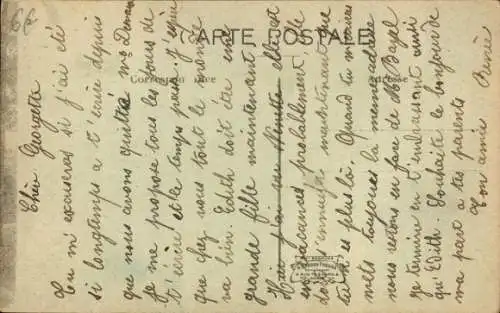 CARTE POSTALE
Correspondance
Adresse
Chère Georgette
Tu m'excuseras si j'ai été
si longtemps a t'écrire depuis
que nous avons quitté Me
je me propose tous les jours de
t'écrire et le temps passe. J'espère
que chez vous tout le monde
va bien. Edith doit être une
grande fille maintenant.
Hier j'ai vu Ginette elle est
en vacances probablement
doit s'ennuyer maintenant que
tu n'es plus là. Quand tu m'écriras
mets toujours la même adresse
nous restons en face de Me Bazel
Je termine en t'embrassant ainsi
qu'Edith. Souhaite le bonjour de
ma part a tes parents
Ton amie Renée